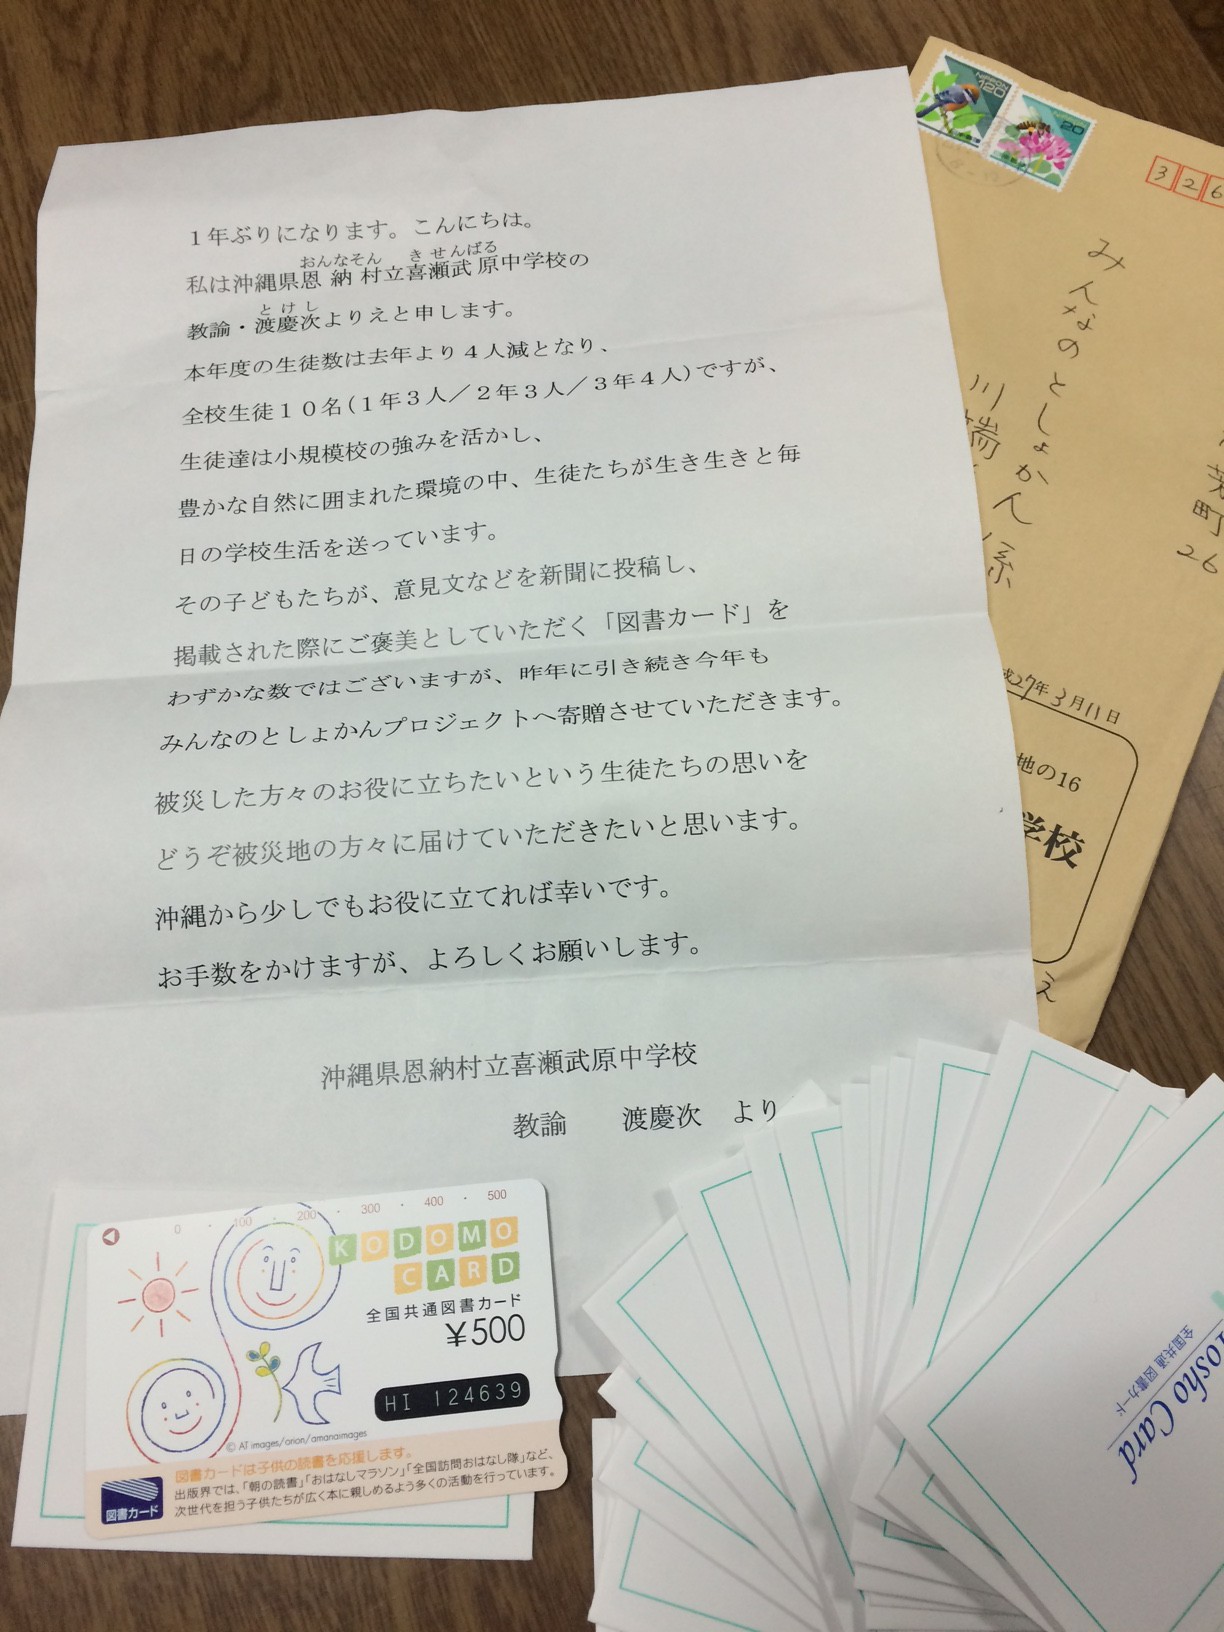 1年ぶりになります。こんにちは。
おんなそん きせんばる
私は沖縄県恩納村立喜瀬武原中学校の
とけし
教諭・渡慶次よりえと申します。
本年度の生徒数は去年より4人減となり、
全校生徒10名(1年3人/2年3人/3年4人)ですが、
生徒達は小規模校の強みを活かし、
豊かな自然に囲まれた環境の中、生徒たちが生き生きと毎
日の学校生活を送っています。
その子どもたちが、意見文などを新聞に投稿し、
掲載された際にご褒美としていただく「図書カード」を
わずかな数ではございますが、昨年に引き続き今年も
みんなのとしょかんプロジェクトへ寄贈させていただきます。
被災した方々のお役に立ちたいという生徒たちの思いを
どうぞ被災地の方々に届けていただきたいと思います。
沖縄から少しでもお役に立てれば幸いです。
お手数をかけますが、よろしくお願いします。
沖縄県恩納村立喜瀬武原中学校
教諭 渡慶次 より
NIPPON 120
NIPPON 20
326
町26
みんなのとしょかん係
川端
27年3月11日
地の16
学校
え
0・100・200・300・400・500
KODOMO
CARD
全国共通図書カード
¥500
HI 124639
© AT images/orion/amanaimages
図書カードは子供の読書を応援します。
出版界では、「朝の読書」「おはなしマラソン」「全国訪問おはなし隊」など、
次世代を担う子供たちが広く本に親しめるよう多くの活動を行っています。
図書カード
Tosho Card
全国共通図書カード